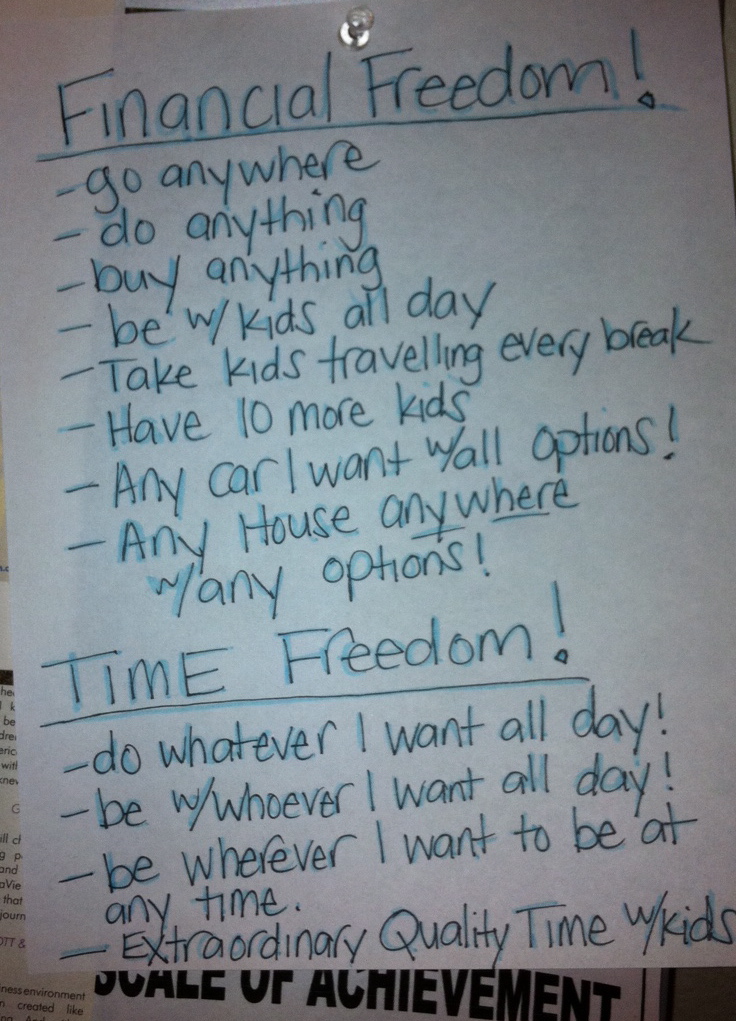 Financial Freedom!
- go anywhere
- do anything
- buy anything
- be w/ kids all day
- Take kids travelling every break
- Have 10 more kids
- Any car I want w/all options!
- Any House anywhere
w/any options!
TIME Freedom!
- do whatever I want all day!
- be w/whoever I want all day!
- be wherever I want to be at
any time.
- Extraordinary Quality Time w/kids
SCALE OF ACHIEVEMENT
be
with
G
and
that
journ
OTT &
ness environment
created like